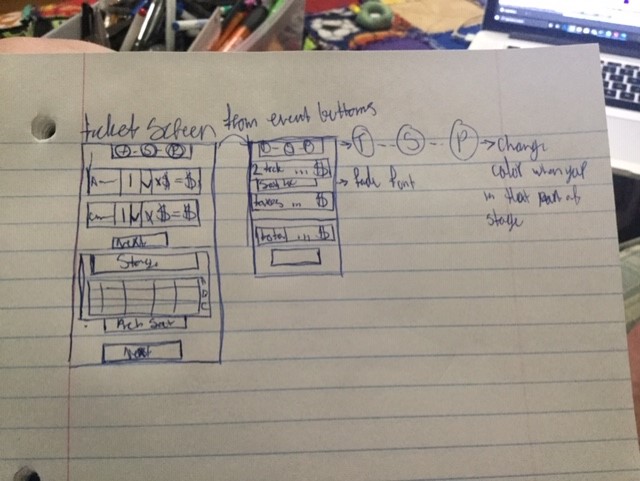 ticket screen from event buttons
T - S - P
A - 1 x $ = $
1 x $ = $
Next
Stage
A
B
C
Pick Seat
Next
2 tick ... $
taxes ... $
total ... $
T - - S - - P → Change
color when you
in that part of
stage
→ fade font